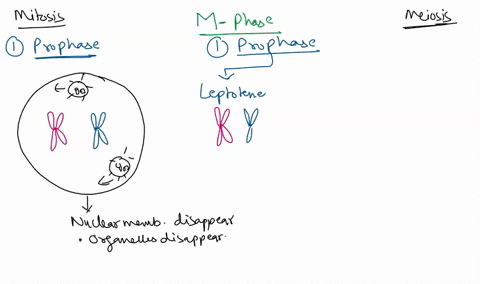 Mitosis
M-Phase
Meiosis
① Prophase
① Prophase
Leptotene
Nuclear memb. disappear
• Organelles disappear.